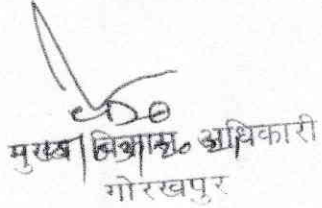 मुख्य विकास अधिकारी
गोरखपुर